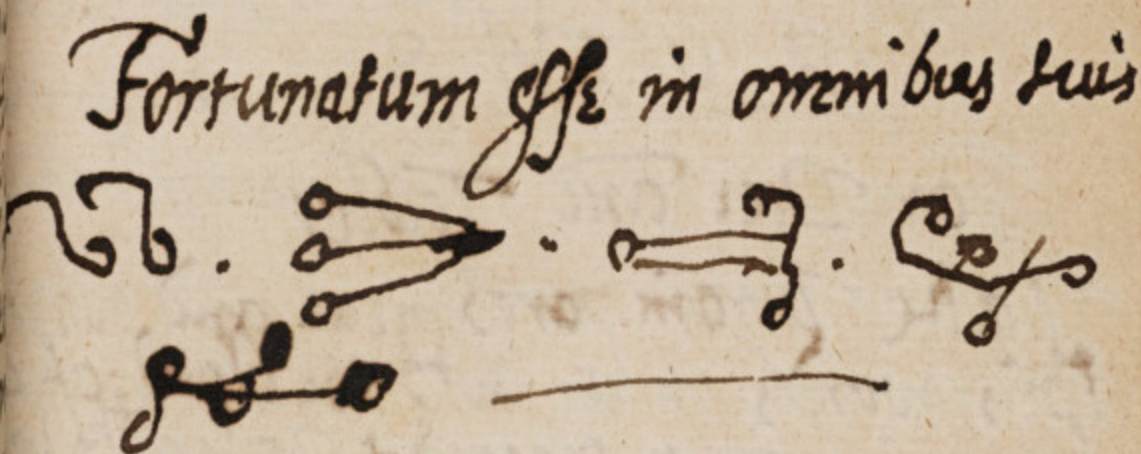 Fortunatum esse in omnibus tuis